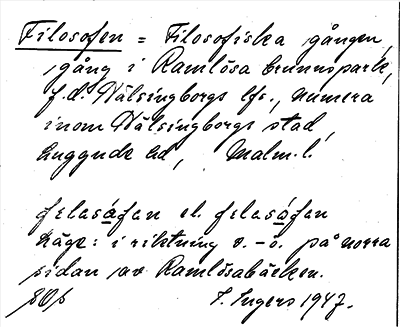 Filosofen = Filosofiska gången,
gång i Ramlösa brunnspark,
f.d. Hälsingborgs lfs., numera
inom Hälsingborgs stad,
Luggude hd, Malm. l.
felasåfan el. felasåfan
Läge: i riktning v.-ö. på norra
sidan av Ramlösabäcken.
F. Ingers 1947.